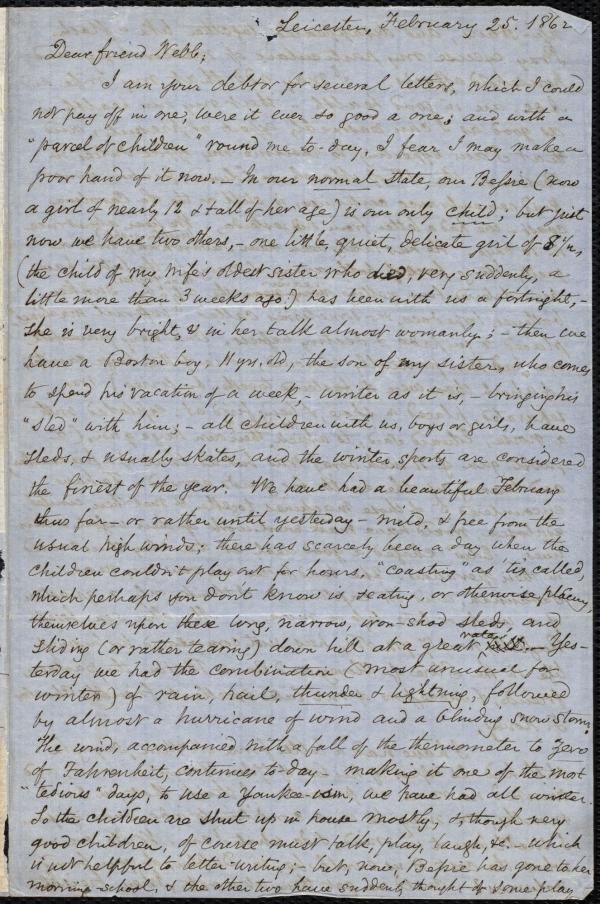 Leicester, February 25. 1862
Dear friend Webb;
I am your debtor for several letters, which I could
not pay off in one, were it ever so good a one; and with a
"parcel of children" round me to-day, I fear I may make a
poor hand of it now. — In our normal state, our Bessie (now
a girl of nearly 12 & tall of her age) is our only child; but just
now we have two others, — one little, quiet, delicate girl of 8 yrs,
(the child of my wife's oldest sister who died, very suddenly, a
little more than 3 weeks ago.) has been with us a fortnight, —
she is very bright, & in her talk almost womanly; — then we
have a Boston boy, 11 yrs. old, the son of my sister, who comes
to spend his vacation of a week, — winter as it is, — bringing his
"sled" with him; — all children with us, boys or girls, have
sleds, & usually skates, and the winter sports are considered
the finest of the year. We have had a beautiful February
thus far — or rather until yesterday — mild, & free from the
usual high winds; there has scarcely been a day when the
children couldn't play out for hours, "coasting" as 'tis called,
which perhaps you don't know is seating, or otherwise placing,
themselves upon these long, narrow, iron-shod sleds, and
sliding (or rather tearing) down hill at a great rate. — Yes-
terday we had the combination (most unusual for
winter) of rain, hail, thunder & lightning, followed
by almost a hurricane of wind and a blinding snow storm.
The wind, accompanied with a fall of the thermometer to zero
of Fahrenheit, continues to-day — making it one of the most
"tedious" days, to use a Yankee-ism, we have had all winter.
So the children are shut up in house mostly, &, though very
good children, of course must talk, play, laugh, &c. — which
is not helpful to letter-writing; — but, now, Bessie has gone to her
morning-school, & the other two have suddenly thought of some play